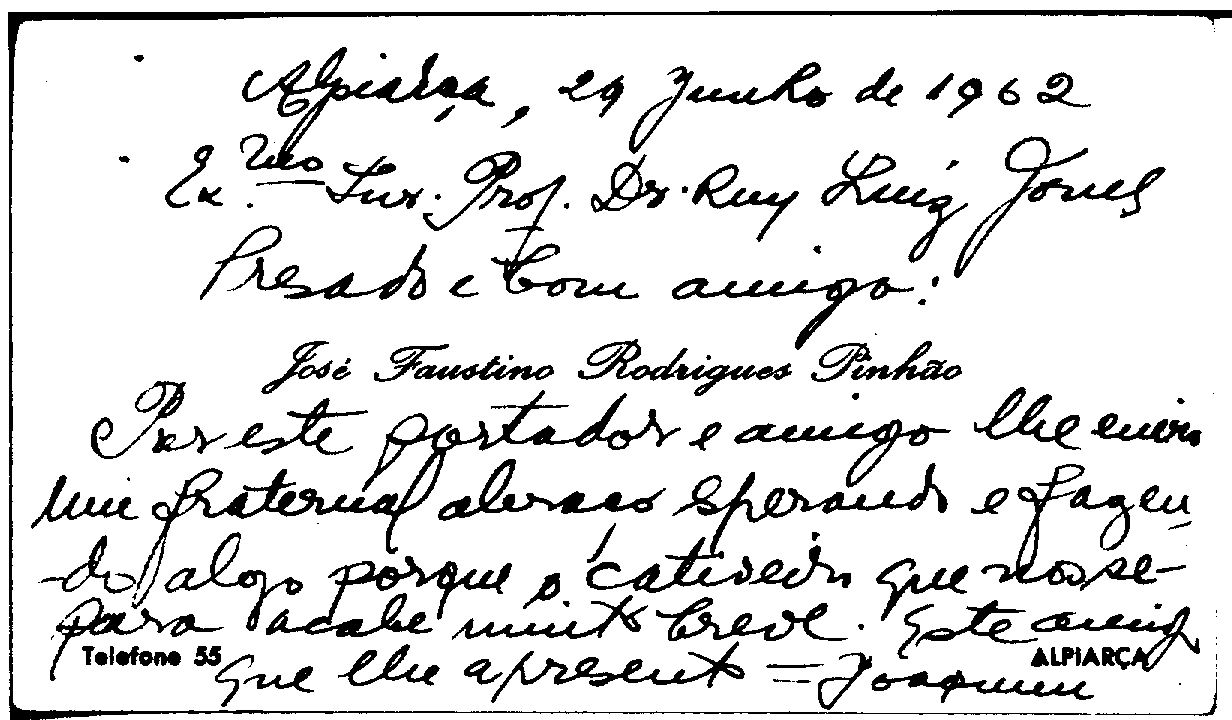 Alpiarça, 29 Junho de 1962
Ex.mo Snr. Prof. Dr. Ruy Luiz Gomes
Presado e bom amigo:
José Faustino Rodrigues Pinhão
Por este portador e amigo lhe envio
um fraternal abraço esperando e fazen
-do algo porque o cativeiro que nos se-
para acabe muito breve. Este amigo
Telefone 55
ALPIARÇA
que lhe apresento = Joaquim